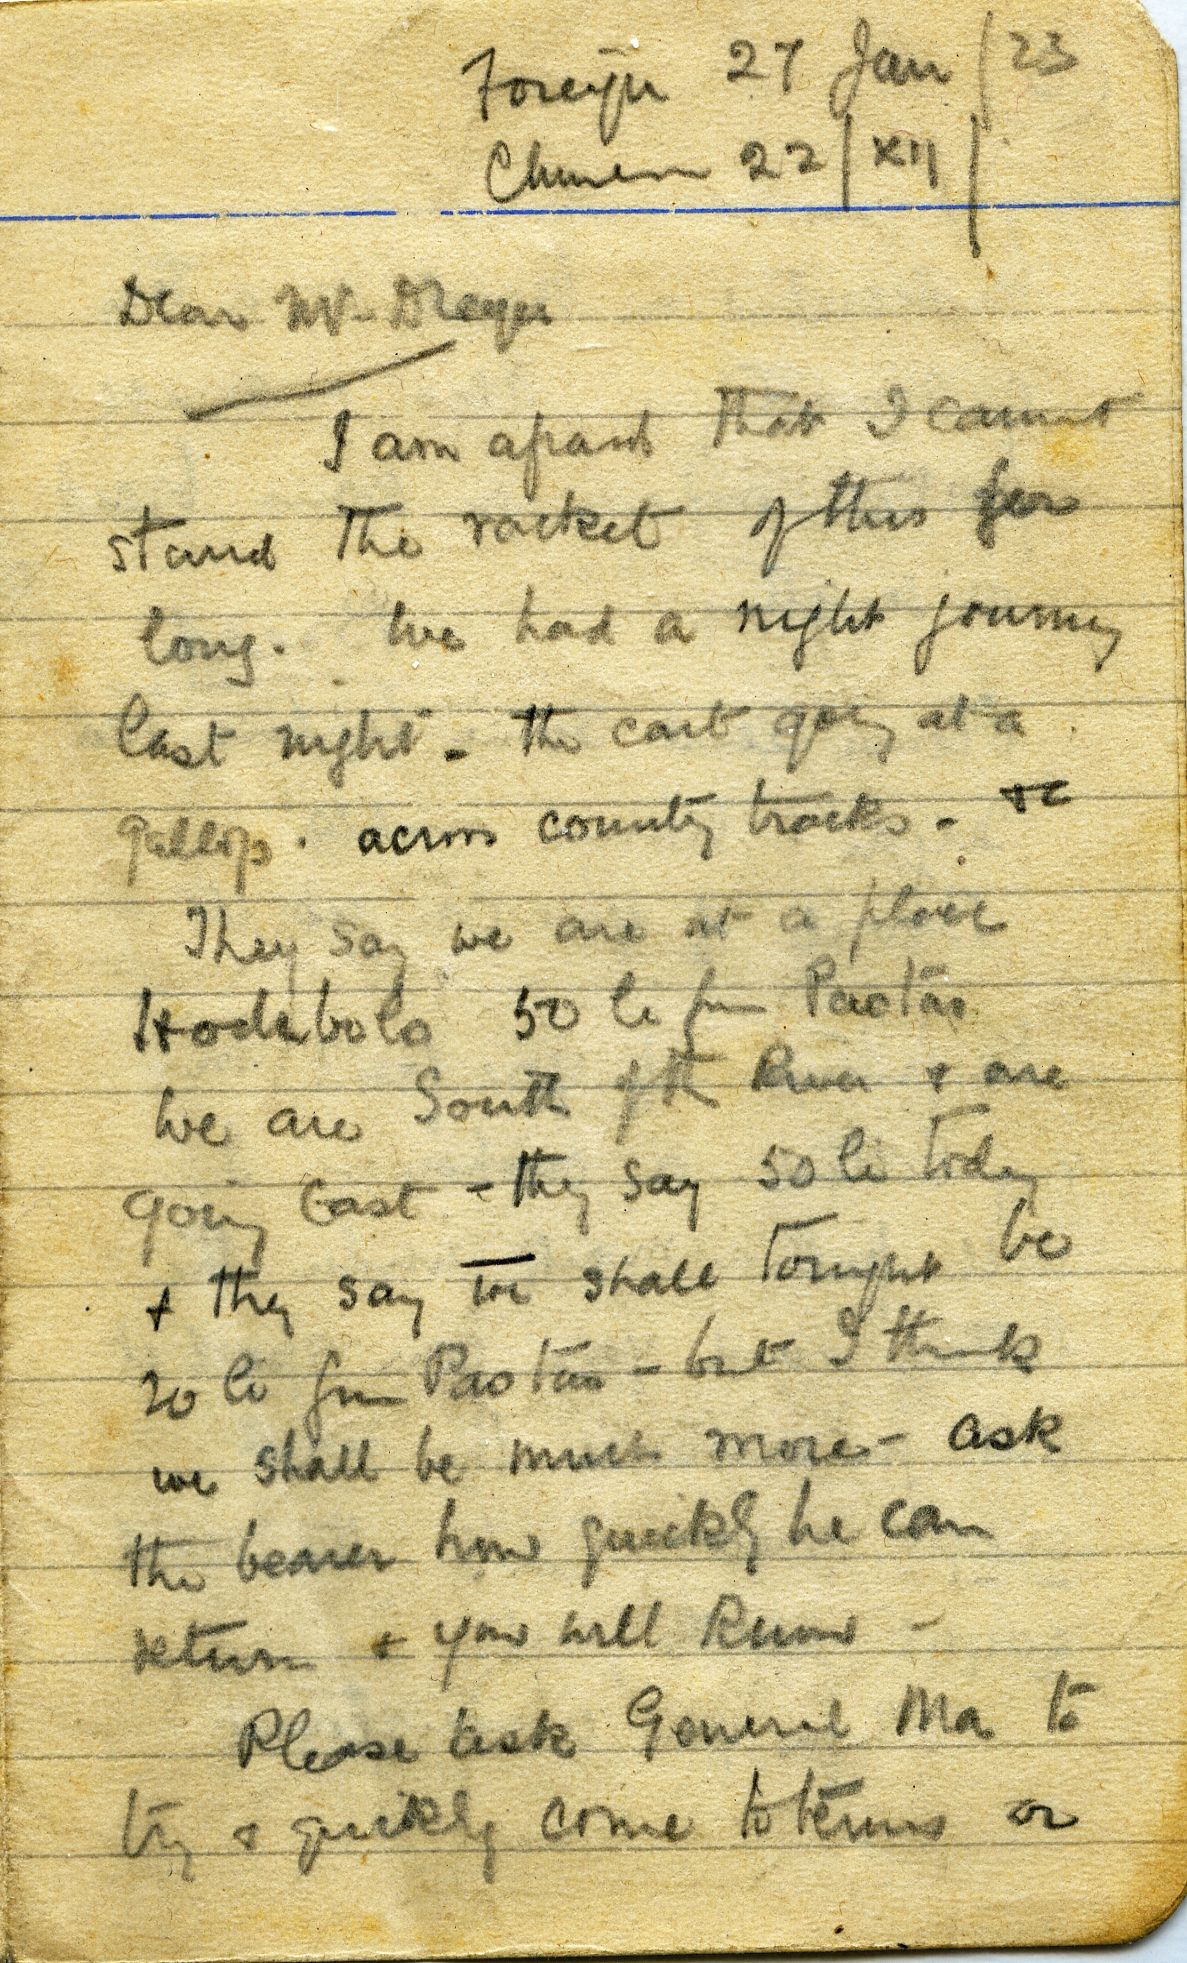 Foreign 27 Jan / 23
Chinese 22 / XII /
Dear Mr. Dreyer
I am afraid that I cannot
stand the racket of this for
long. We had a night journey
last night - the cart going at a
gallop. across country tracks - &c
They say we are at a place
Hodebolo 50 li from Paotao
We are South of the River & are
going East - they say 50 li today
& they say we shall tonight be
20 li from Paotao - but I think
we shall be much more - ask
the bearer how quickly he can
return & you will know -
Please ask General Ma to
try & quickly come to terms or